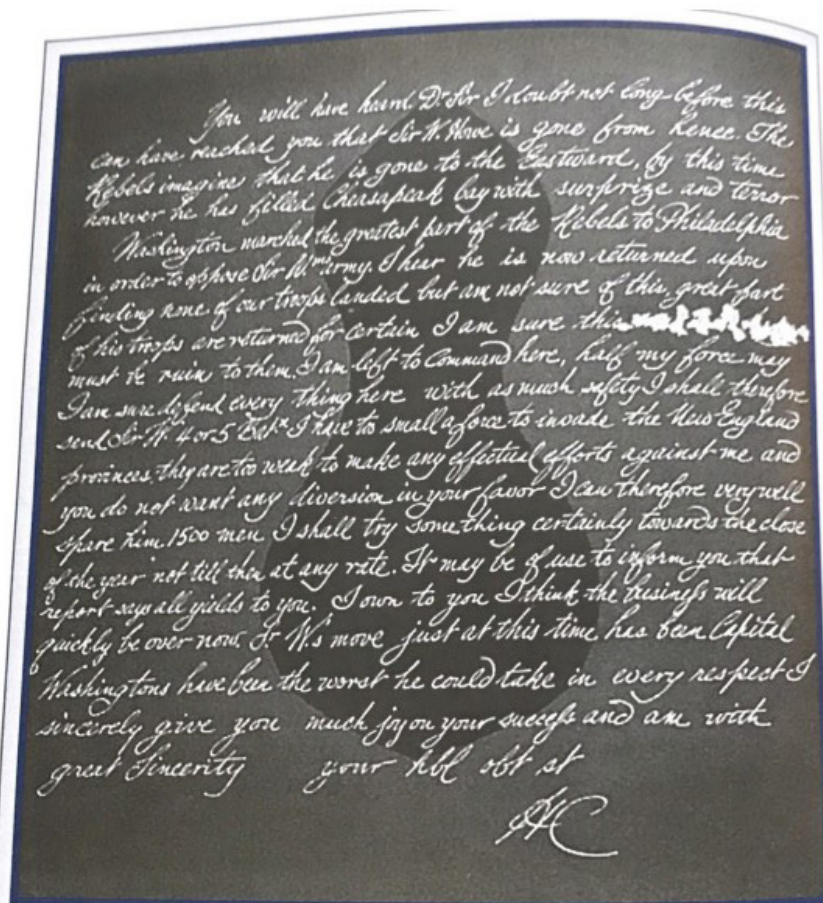 You will have heard Dr Sir I doubt not long before this
can have reached you that Sir W. Howe is gone from hence. The
Rebels imagine that he is gone to the Eastward, by this time
however he has filled Cheasapeak bay with surprize and terror
Washington marched the greatest part of the Rebels to Philadelphia
in order to oppose Sir Wms army. I hear he is now returned upon
finding none of our troops landed but am not sure of this, great part
of his troops are returned for certain I am sure this
must be ruin to them. I am left to Command here, half my force may
I am sure defend every thing here with as much safety I shall therefore
send Sir W. 4 or 5 Batns I have to small a force to invade the New England
provinces, they are too weak to make any effectual efforts against me and
you do not want any diversion in your favor I can therefore very well
spare him 1500 men I shall try some thing certainly towards the close
of the year not till then at any rate. It may be of use to inform you that
report says all yields to you. I own to you I think the business will
quickly be over now. Sr W's move just at this time has been Capital
Washingtons have been the worst he could take in every respect I
sincerely give you much joy on your success and am with
great Sincerity your hbl obt st
HC